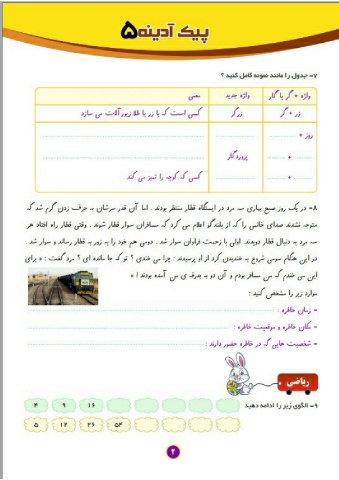 پیک آدینه ۵
۷- جدول را مانند نمونه کامل کنید ؟
واژه + گر یا گار
واژه جدید
معنی
زر + گر
زرگر
کسی است که با زر یا طلا زیورآلات می سازد
روز + ..........
..........
..........
.......... + ..........
پروردگار
..........
.......... + ..........
..........
کسی که کوچه را تمیز می کند
۸- در یک روز صبح بهاری سه مرد در ایستگاه قطار منتظر بودند . اما آن قدر سرشان به حرف زدن گرم شد که
متوجه نشدند صدای خانمی را که از بلندگو اعلام می کرد که مسافران سوار قطار شوند . وقتی قطار راه افتاد هر
سه مرد به دنبال قطار دویدند. اولی با زحمت فراوان سوار شد . دومی هم خود را به زور به قطار رساند و سوار شد .
در این هنگام سومی شروع به خندیدن کرد از او پرسیدند : چرا می خندی ؟ تو که جا مانده ای ؟ مرد گفت : « برای
این می خندم که من مسافر بودم و آن دو به بدرقه ی من آمده بودند ! »
موارد زیر را مشخص کنید :
- زمان خاطره :
- مکان خاطره و موقعیت خاطره :
- شخصیت هایی که در خاطره حضور دارند :
ریاضی
۹- الگوی زیر را ادامه دهید
۴ ۹ ۱۶
۵ ۱۲ ۲۶ ۵۴
۲